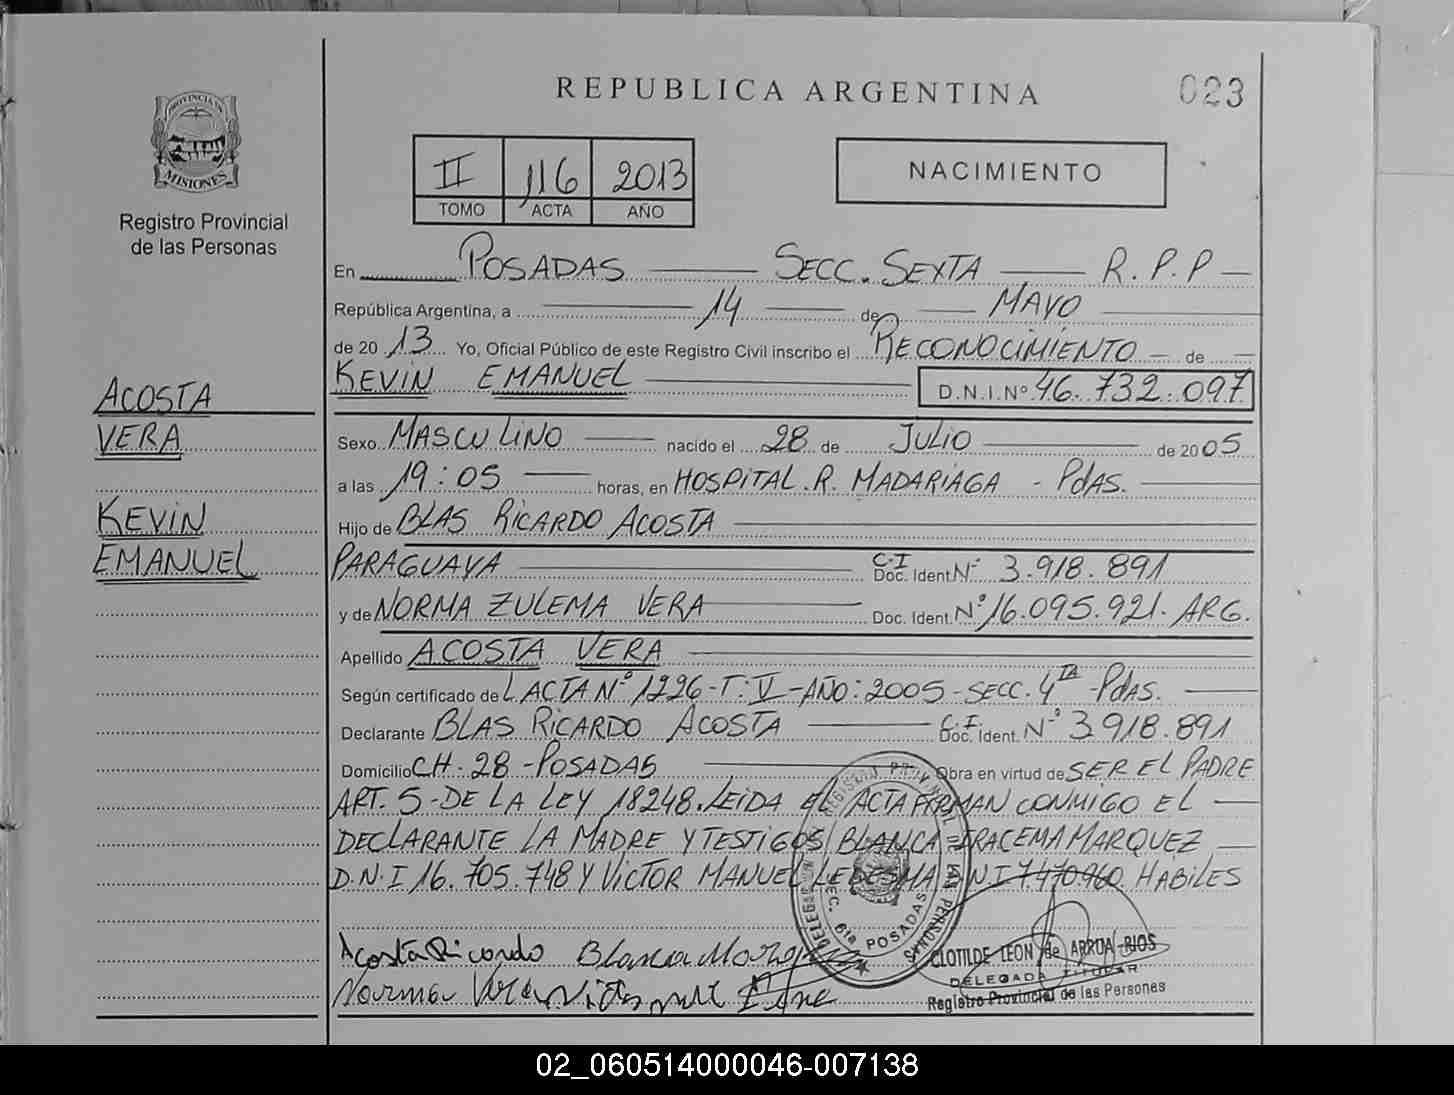 REPUBLICA ARGENTINA
023
PROVINCIA DE
MISIONES
Registro Provincial
de las Personas
II 116 2013
TOMO ACTA AÑO
NACIMIENTO
En POSADAS SECC. SEXTA R.P.P
República Argentina, a 14 de MAYO
de 2013 Yo, Oficial Público de este Registro Civil inscribo el RECONOCIMIENTO de
KEVIN EMANUEL D.N.I.Nº 46.732.097
ACOSTA
VERA
KEVIN
EMANUEL
Sexo MASCULINO nacido el 28 de JULIO de 2005
a las 19:05 horas, en HOSPITAL.R. MADARIAGA - PdAS.
Hijo de BLAS RICARDO ACOSTA
PARAGUAYA C.I Doc. Ident. Nº 3.918.891
y de NORMA ZULEMA VERA Doc. Ident. Nº 16.095.921. ARG.
Apellido ACOSTA VERA
Según certificado de L ACTA Nº 1226-T: V-AÑO: 2005-SECC. 4TA-PdAS.
Declarante BLAS RICARDO ACOSTA C.I. Doc. Ident. Nº 3.918.891
Domicilio CH-28-POSADAS Obra en virtud de SER EL PADRE
ART. 5-DE LA LEY 18248. LEIDA EL ACTA FIRMAN CONMIGO EL
DECLARANTE LA MADRE Y TESTIGOS/ BLANCA IRACEMA MARQUEZ
D.N.I 16.705.748 Y VICTOR MANUEL LEDESMA D.N.I 7.470.960. HABILES
REGISTRO PROVINCIAL DE LAS PERSONAS
DELEGACION
SEC. 6ta POSADAS
Acosta Ricardo Blanca
Norma Vera
CLOTILDE LEON de ARRUA RIOS
DELEGADA TITULAR
Registro Provincial de las Personas
02_060514000046-007138